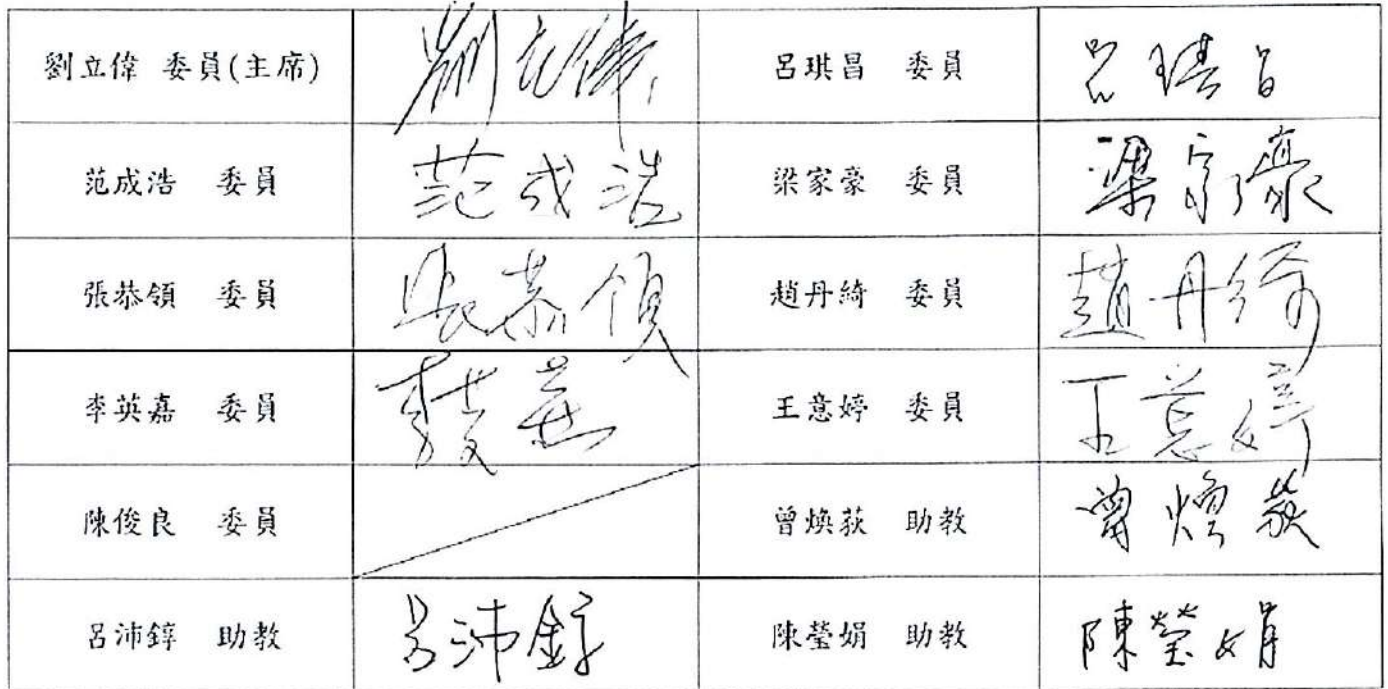 劉立偉 委員(主席) 劉立偉 呂琪昌 委員 呂琪昌
范成浩 委員 范成浩 梁家豪 委員 梁家豪
張恭領 委員 張恭領 趙丹綺 委員 趙丹綺
李英嘉 委員 李英嘉 王意婷 委員 王意婷
陳俊良 委員 曾煥荻 助教 曾煥荻
呂沛錞 助教 呂沛錞 陳瑩娟 助教 陳瑩娟